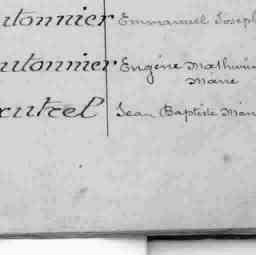 utonnier Emmanuel Joseph
utonnier Eugéne Mathurin
Marie
utrel Jean Baptiste Marie